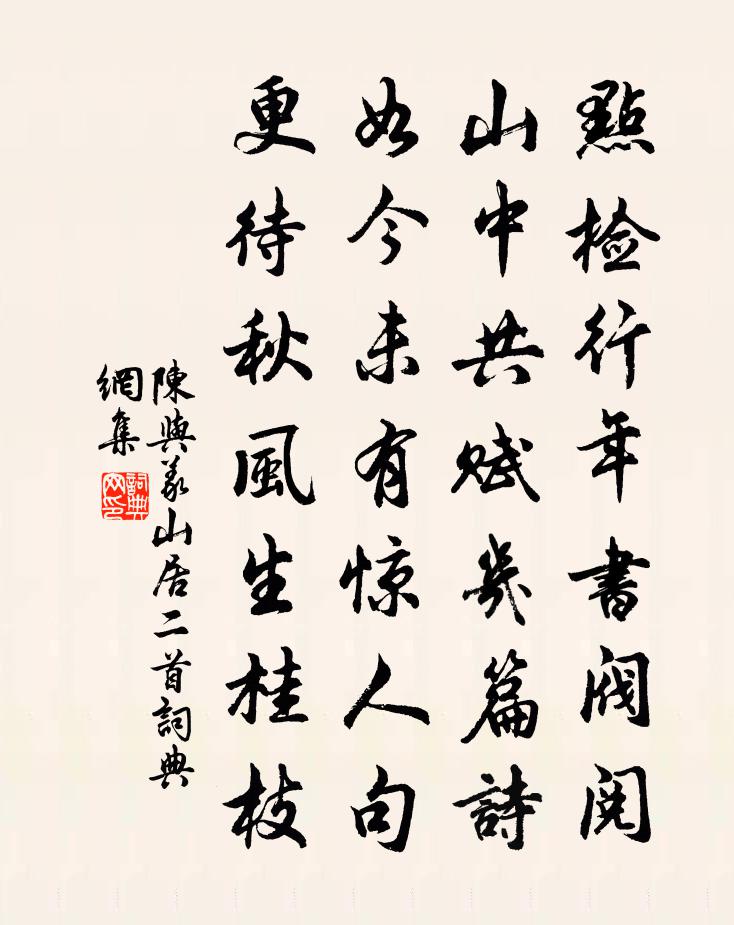 點检行年書阀阅
山中共赋幾篇詩
如今未有惊人句
更待秋風生桂枝
陳與義山居二首詞典
網集
詞典
网印